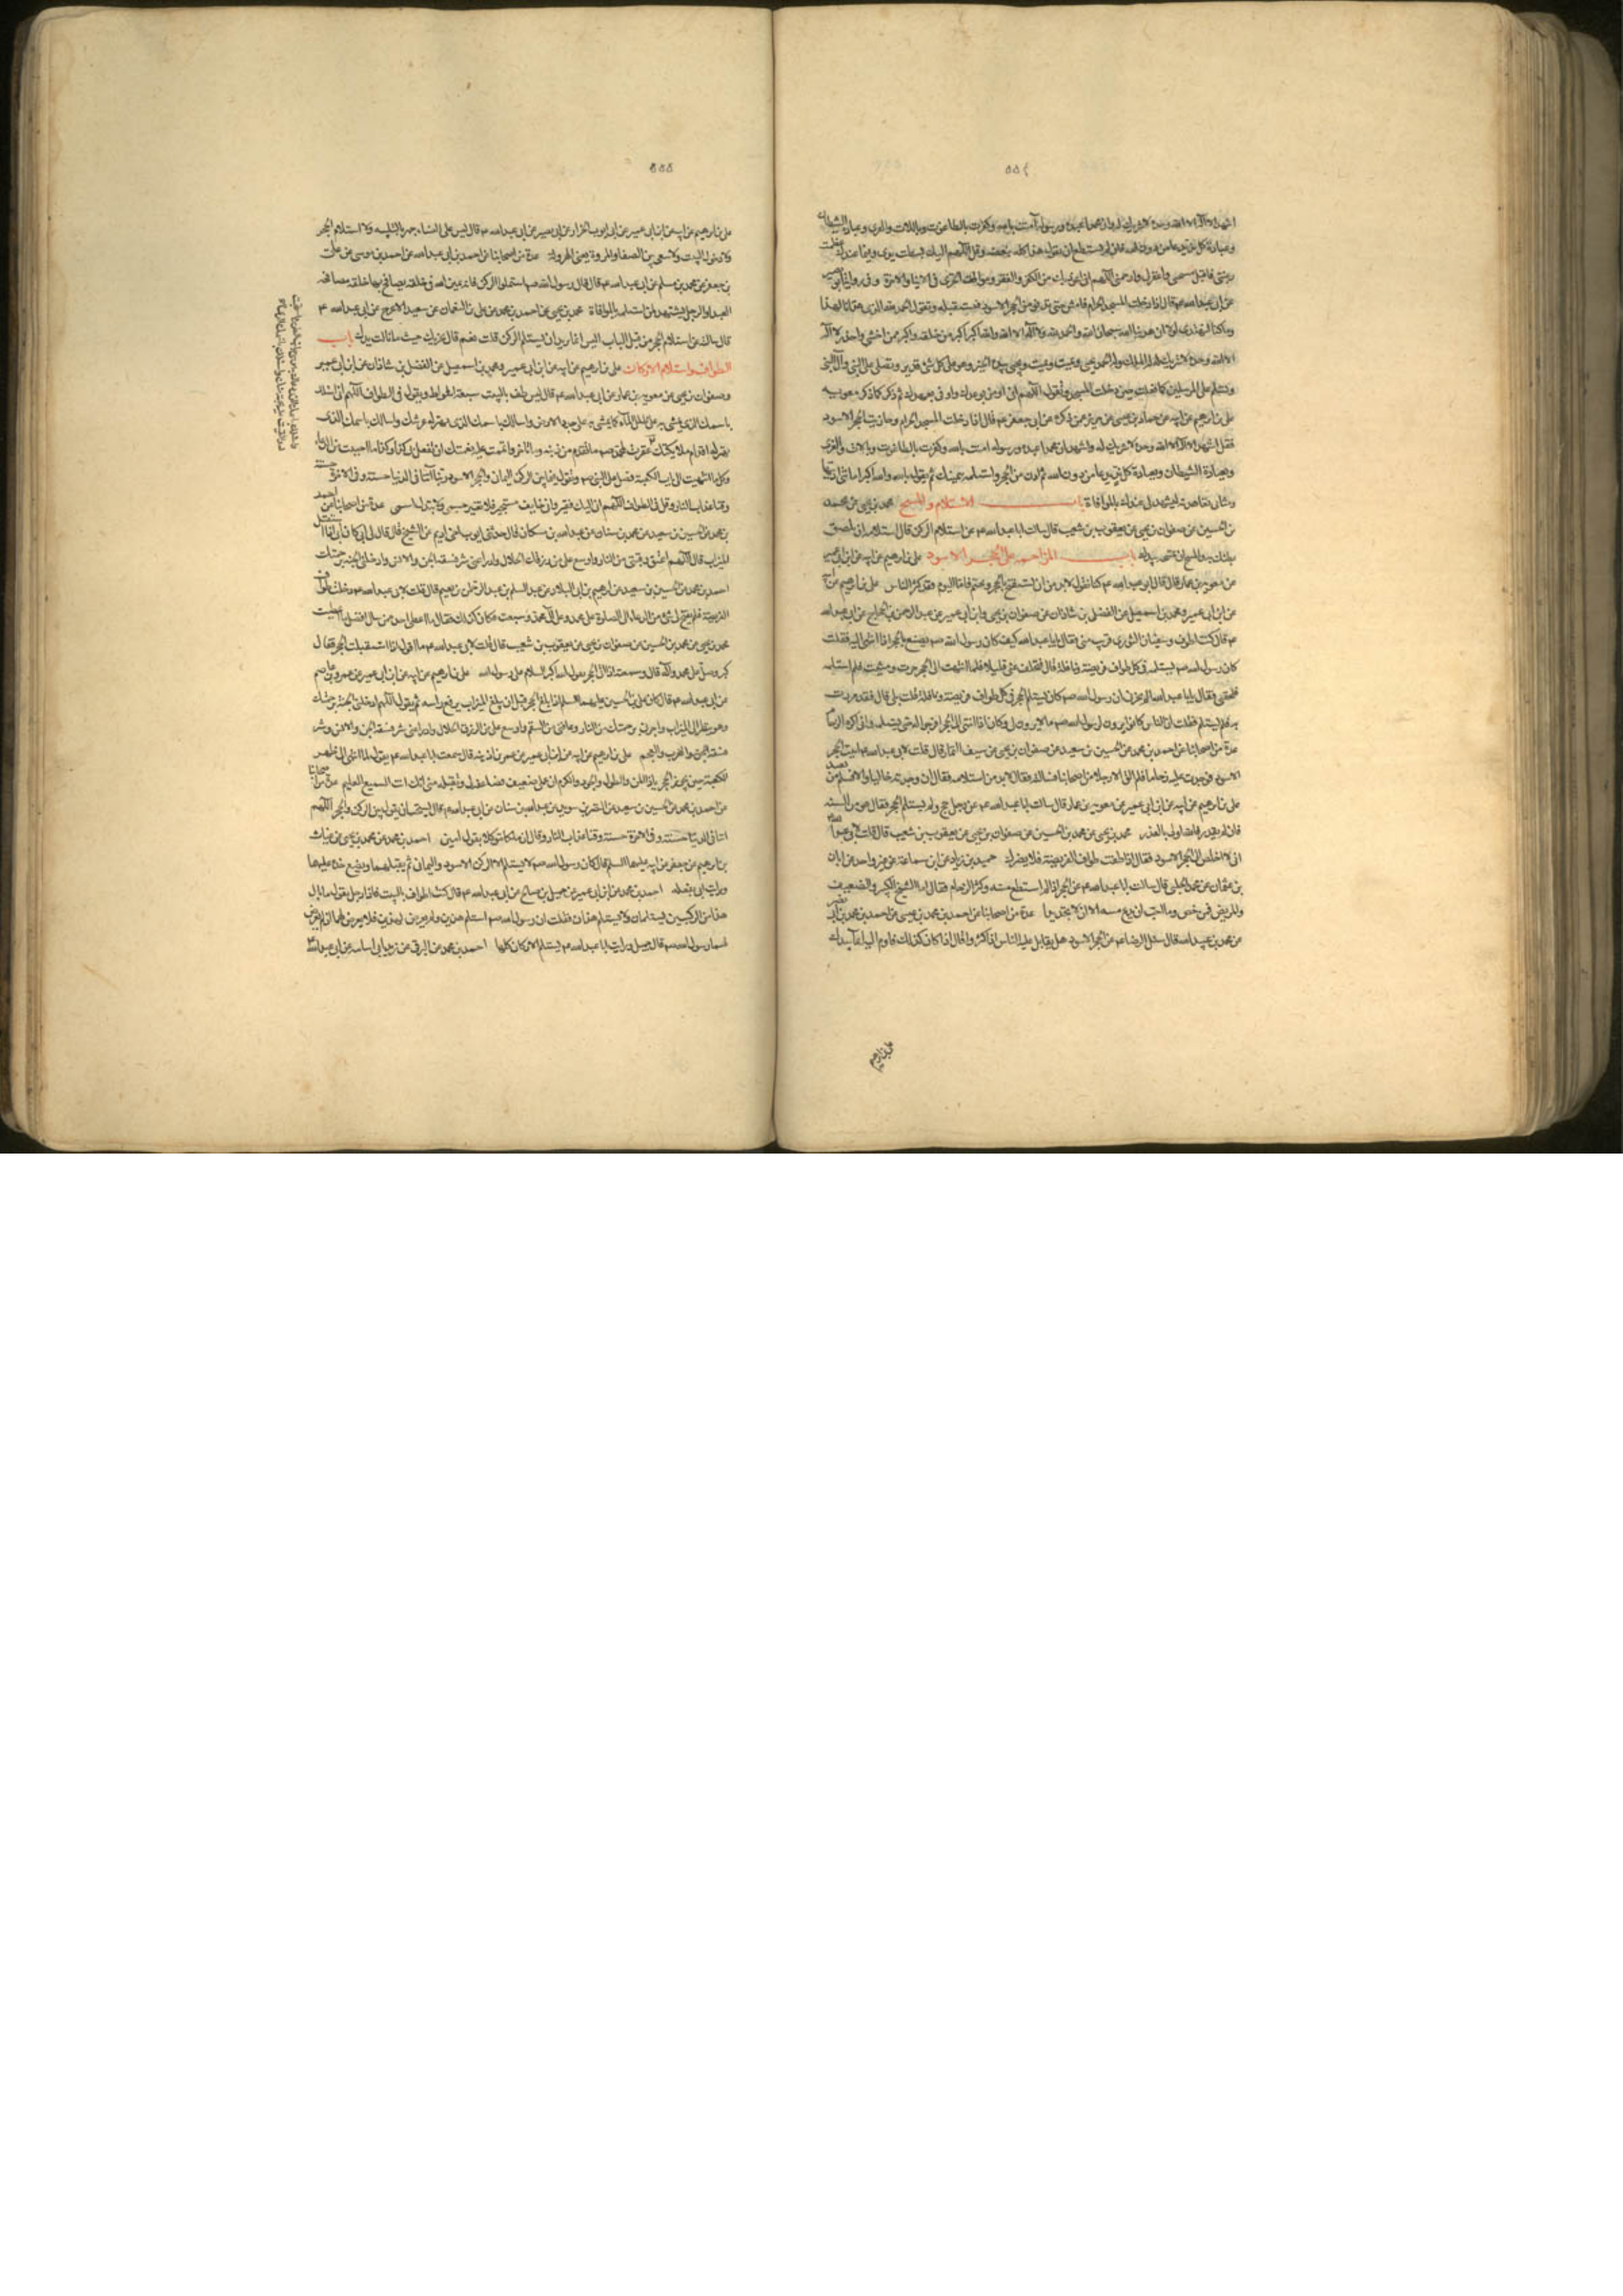 ٥٥٤
اشهد ان لا اله الا الله وحده لا شريك له وان محمدا عبده ورسوله آمنت بالله وكفرت بالطاغوت وباللات والعزى وعبادة الشيطان
وعبادة كل ند يدعى من دون الله فان لم تستطع ان تقول هذا كله فبعضه وقل اللهم اليك بسطت يدى وفيما عندك عظمت
رغبتى فاقبل سبحتى واغفر لى وارحمنى اللهم انى اعوذ بك من الكفر والفقر ومواقف الخزى فى الدنيا والاخرة وفى رواية ابى بصير
عن ابى عبد الله ع قال اذا دخلت المسجد الحرام فامش حتى تدنو من الحجر الاسود فتستقبله وتقول الحمد لله الذى هدانا لهذا
وما كنا لنهتدى لولا ان هدينا الله سبحان الله والحمد لله ولا اله الا الله والله اكبر اكبر من خلقه واكبر ممن اخشى واحذر لا اله
الا الله وحده لا شريك له له الملك وله الحمد يحيى ويميت ويميت ويحيى بيده الخير وهو على كل شئ قدير وتصلى على النبى وآل النبى
وتسلم على المرسلين كما فعلت حين دخلت المسجد وتقول اللهم انى اومن بوعدك واوفى بعهدك ثم ذكر كما ذكر معوية
على بن ابرهيم عن ابيه عن حماد بن عيسى عن حريز عمن ذكره عن ابى جعفر ع قال اذا دخلت المسجد الحرام وحاذيت الحجر الاسود
فقل اشهد ان لا اله الا الله وحده لا شريك له واشهد ان محمدا عبده ورسوله امنت بالله وكفرت بالطاغوت وباللات والعزى
وبعبادة الشيطان وبعبادة كل ند يدعى من دون الله ثم ادن من الحجر واستلمه بيمينك ثم تقول بسم الله والله اكبر امانتى اديتها
وميثاقى تعاهدته لتشهد لى عندك بالموافاة باب الاستلام والمسح محمد بن يحيى عن محمد
بن الحسين عن صفوان بن يحيى عن يعقوب بن شعيب قال سالت ابا عبد الله ع عن استلام الركن قال استلامه ان تلصق
بطنك به والمسح ان تمسحه بيدك باب المزاحمة على الحجر الاسود على بن ابرهيم عن ابيه عن ابن ابى عمير
عن معوية بن عمار قال قال ابو عبد الله ع كنا نقول لا بد من ان نستفتح بالحجر ونختم به فاما اليوم فقد كثر الناس على بن ابرهيم عن ابيه
عن ابن ابى عمير ومحمد بن اسمعيل عن الفضل بن شاذان عن صفوان بن يحيى وابن ابى عمير عن عبد الرحمن بن الحجاج عن ابى عبد الله
ع قال كنت اطوف وسفيان الثورى قريب منى فقال يا ابا عبد الله كيف كان رسول الله ص يصنع بالحجر اذا انتهى اليه فقلت
كان رسول الله ص يستلمه فى كل طواف فريضة ونافلة قال فتخلف عنى قليلا فلما انتهيت الى الحجر جزت ومشيت فلم استلمه
فلحقنى فقال يا ابا عبد الله الم تخبرنى ان رسول الله ص كان يستلم الحجر فى كل طواف فريضة ونافلة قلت بلى قال فقد مررت
به فلم تستلم فقلت ان الناس كانوا يرون لرسول الله ص ما لا يرون لى وكان اذا انتهى الى الحجر افرجوا له حتى يستلمه وانى اكره الزحام
عدة من اصحابنا عن احمد بن محمد عن الحسين بن سعيد عن صفوان بن يحيى عن سيف التمار قال قلت لابى عبد الله ع اتيت الحجر
الاسود فوجدت عليه زحاما فلم الق الا رجلا من اصحابنا فسالته فقال لا بد من استلامه فقال ان وجدته خاليا والا فسلم من بعيد
على بن ابرهيم عن ابيه عن ابن ابى عمير عن معوية بن عمار قال سالت ابا عبد الله ع عن رجل حج ولم يستلم الحجر فقال هو من السنة
فان لم يقدر فالله اولى بالعذر محمد بن يحيى عن محمد بن الحسين عن صفوان بن يحيى عن يعقوب بن شعيب قال قلت لابى عبد الله
انى لا اخلص الى الحجر الاسود فقال اذا طفت طواف الفريضة فلا يضرك حميد بن زياد عن ابن سماعة عن غير واحد عن ابان
بن عثمان عن محمد الحلبى قال سالت ابا عبد الله ع عن الحجر اذا لم استطع مسه وكثر الزحام فقال اما الشيخ الكبير والضعيف
والمريض فمرخص وما احب ان تدع مسه الا ان لا تجد بدا عدة من اصحابنا عن احمد بن محمد بن عيسى عن احمد بن محمد بن ابى نصر
عن محمد بن عبيد الله قال سئل الرضا ع عن الحجر الاسود هل يقاتل عليه الناس اذا كثروا قال اذا كان كذلك فاوم اليه ايماء بيدك
على بن ابرهيم
٥٥٥
على بن ابرهيم عن ابيه عن ابن ابى عمير عن ابى ايوب الخزاز عن ابى بصير عن ابى عبد الله ع قال ليس على النساء جهر بالتلبية ولا استلام الحجر
ولا دخول البيت ولا سعى بين الصفا والمروة يعنى الهرولة عدة من اصحابنا عن احمد بن ابى عبد الله عن احمد بن موسى عن على
بن جعفر عن محمد بن مسلم عن ابى عبد الله ع قال قال رسول الله ص استلموا الركن فانه يمين الله فى خلقه يصافح بها خلقه مصافحة
العبد او الرجل يشهد لمن استلمه بالموافاة محمد بن يحيى عن احمد بن محمد عن على بن النعمان عن سعيد الاعرج عن ابى عبد الله ع
قال سالته عن استلام الحجر من قبل الباب اليس انما تريد ان تستلم الركن قلت نعم قال يجزيك حيث ما نالت يدك باب
الطواف واستلام الاركان على بن ابرهيم عن ابيه عن ابن ابى عمير ومحمد بن اسمعيل عن الفضل بن شاذان عن ابن ابى عمير
وصفوان بن يحيى عن معوية بن عمار عن ابى عبد الله ع قال طف بالبيت سبعة اشواط وتقول فى الطواف اللهم انى اسئلك
باسمك الذى يمشى به على طلل الماء كما يمشى به على جدد الارض واسالك باسمك الذى يهتز له عرشك واسالك باسمك الذى
تهتز له اقدام ملائكتك
وكلما انتهيت الى باب الكعبة فصل على النبى ص وتقول فيما بين الركن اليمانى والحجر الاسود ربنا آتنا فى الدنيا حسنة وفى الاخرة حسنة
وقنا عذاب النار وقل فى الطواف اللهم انى اليك فقير وانى خايف مستجير فلا تغير جسمى ولا تبدل اسمى عدة من اصحابنا عن احمد
بن محمد عن الحسين بن سعيد عن محمد بن سنان عن عبد الله بن مسكان قال حدثنى ايوب اخى اديم عن الشيخ قال قال لى ابى كان ابى اذا استقبل
الميزاب قال اللهم اعتق رقبتى من النار واوسع على من رزقك الحلال وادرا عنى شر فسقة الجن والانس وادخلنى الجنة برحمتك
احمد بن محمد عن الحسين بن سعيد عن ابرهيم بن ابى البلاد عن عبد السلم بن عبد الرحمن بن نعيم قال قلت لابى عبد الله ع دخلت طواف
الفريضة فلم يفتح لى شئ من الدعاء الا الصلوة على محمد وعلى آل محمد وسعيت فكان كذلك فقال ما اعطى احد ممن سال افضل مما اعطيت
محمد بن يحيى عن محمد بن الحسين عن صفوان بن يحيى عن يعقوب بن شعيب قال قلت لابى عبد الله ع ما اقول اذا استقبلت الحجر فقال
كبر وصل على محمد وآله قال وسمعته اذا اتى الحجر يقول الله اكبر السلام على رسول الله على بن ابرهيم عن ابيه عن ابن ابى عمير عن عمر بن عاصم
عن ابى عبد الله ع قال كان على بن الحسين عليهما السلم اذا بلغ الحجر قبل ان يبلغ الميزاب يرفع راسه ثم يقول اللهم ادخلنى الجنة برحمتك
وهو ينظر الى الميزاب واجرنى برحمتك من النار وعافنى من السقم واوسع على من الرزق الحلال وادرا عنى شر فسقة الجن والانس وشر
فسقة العرب والعجم على بن ابرهيم عن ابيه عن ابن ابى عمير عن عمر بن اذينة قال سمعت ابا عبد الله ع يقول لما انتهى الى ظهر
الكعبة حين يجوز الحجر يا ذا المن والطول والجود والكرم ان عملى ضعيف فضاعفه لى وتقبله منى انك انت السميع العليم عدة من اصحابنا
عن احمد بن محمد عن الحسين بن سعيد عن النضر بن سويد عن عبد الله بن سنان عن ابى عبد الله ع قال يستحب ان يقول بين الركن والحجر اللهم
اتنا فى الدنيا حسنة وفى الاخرة حسنة وقنا عذاب النار وقال ان ملكا موكلا يقول امين احمد بن محمد عن محمد بن يحيى عن غياث
بن ابرهيم عن جعفر عن ابيه عليهما السلم قال كان رسول الله ص لا يستلم الا الركن الاسود واليمانى ثم يقبلهما ويضع خده عليهما
ورايت ابى يفعله احمد بن محمد عن ابن ابى عمير عن جميل بن صالح عن ابى عبد الله ع قال كنت اطوف بالبيت فاذا رجل يقول ما بال
هذين الركنين يستلمان ولا يستلم هذان فقلت ان رسول الله ص استلم هذين ولم يعرض لهذين فلا تعرض لهما اذ لم يعرض
لهما رسول الله ص قال جميل ورايت ابا عبد الله ع يستلم الاركان كلها احمد بن محمد عن البرقى عن زيد ابى اسامة عن ابى عبد الله ع